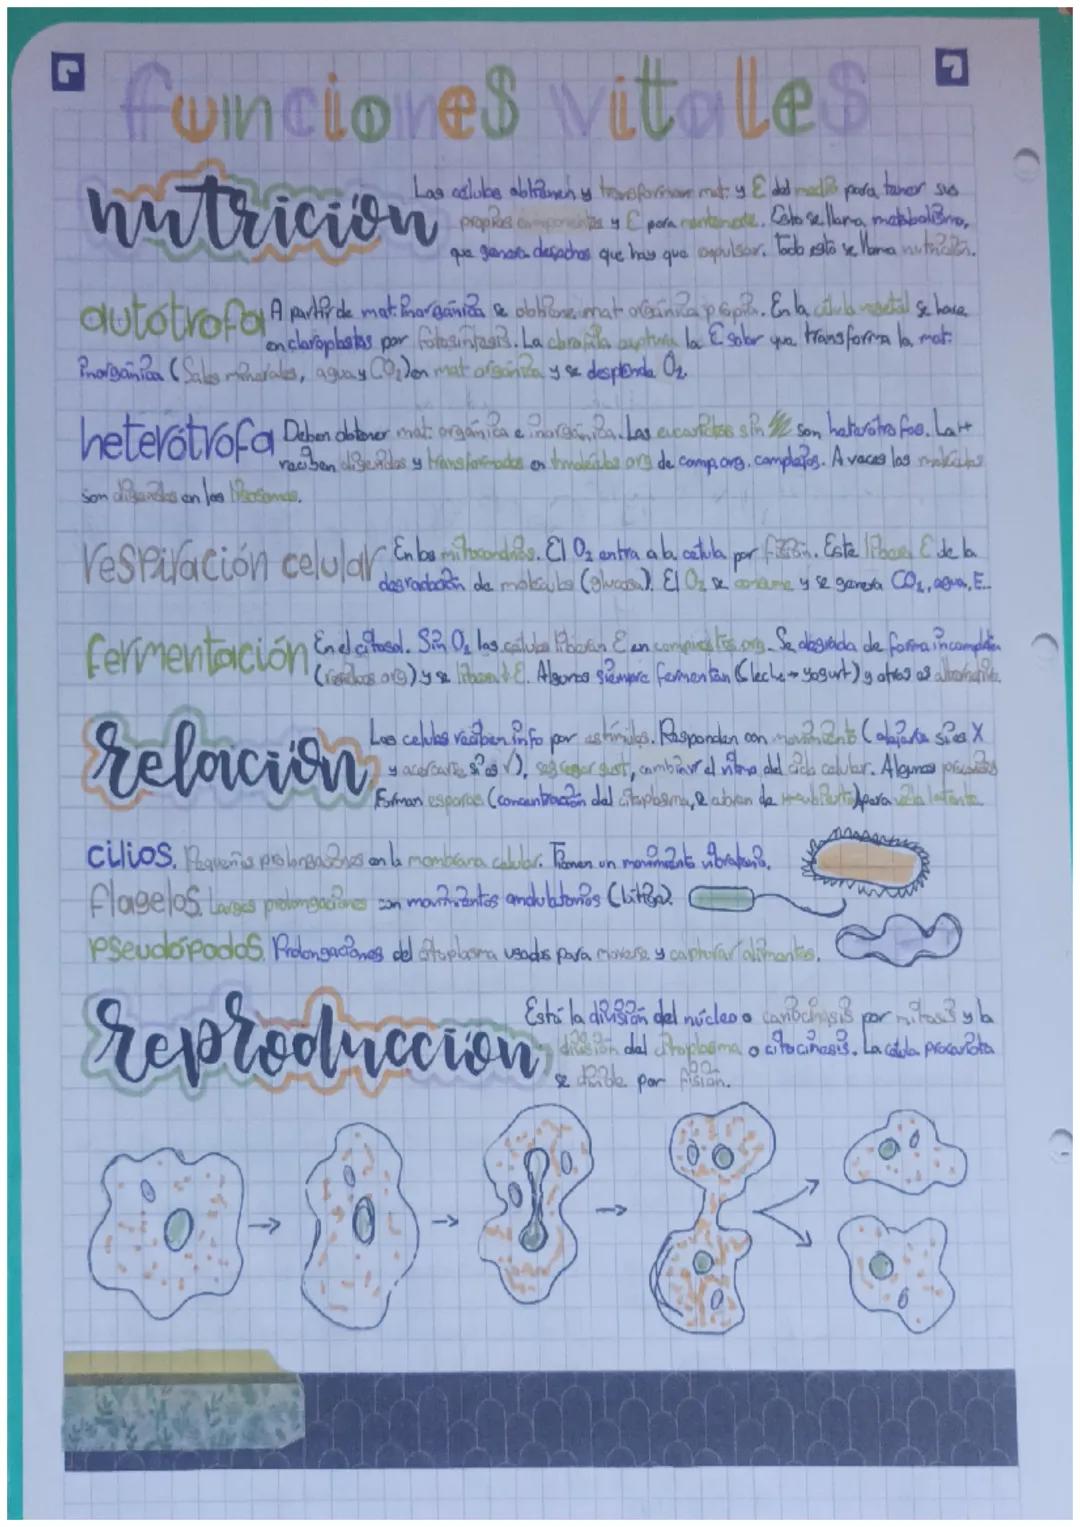 funciones vitales
nutrición
Las células obtienen y transforman mat. y E del medio para tener sus
propios componentes y E para mantenerse. Esto se llama metabolismo,
que genera desechos que hay que expulsar. Todo esto se llama nutrición.
autótrofa A partir de mat. inorgánica se obtiene mat orgánica propia. En la célula vegetal se hace
en cloroplastos por fotosíntesis. La clorofila captura la E solar que transforma la mat.
inorgánica (Sales minerales, agua y CO2) en mat orgánica y se desprende O2.
heterótrofa Deben obtener mat. orgánica e inorgánica. Las eucariotas sin son heterótrofas. La
reciben digeridas y transformadas en moléculas org de comp. org. complejos. A veces las moléculas
son digeridas en los lisosomas.
respiración celular En las mitocondrias. El O2 entra a la célula por Este libera E de la
degradación de moléculas (glucosa). El O2 se consume y se genera CO2, agua, E.
fermentación En el citosol. Sin O2 las células liberan E en org. Se degrada de forma incompleta
(residuos org) y se libera E. Algunos siempre fermentan (leche → yogurt) y otros
relación Las células reciben info por estímulos. Responden con movimiento (alejarse si es X
y acercarse si es √), segregar sust, cambiar el ritmo del ciclo celular. Algunas procariotas
Forman esporas (concentración del citoplasma, se cubren de ) para vida latente
cilios. Pequeñas prolongaciones en la membrana celular. Tienen un movimiento vibratorio.
flagelos. Largas prolongaciones con movimientos ondulatorios (látigo).
pseudópodos. Prolongaciones del citoplasma usadas para moverse y capturar alimentos.
reproducción
Está la división del núcleo o cariocinesis por mitosis y la
división del citoplasma o citocinesis. La célula procariota
se divide por fisión.